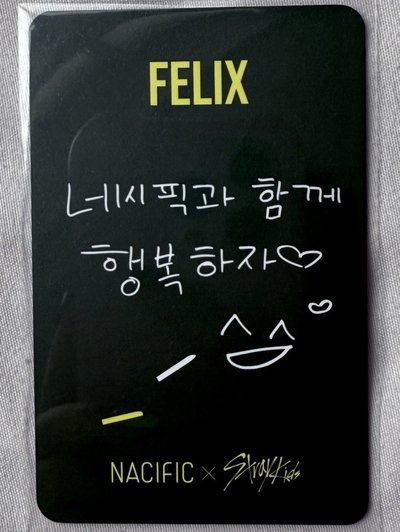 FELIX
네시픽과 함께
행복하자♡
NACIFIC × Stray Kids